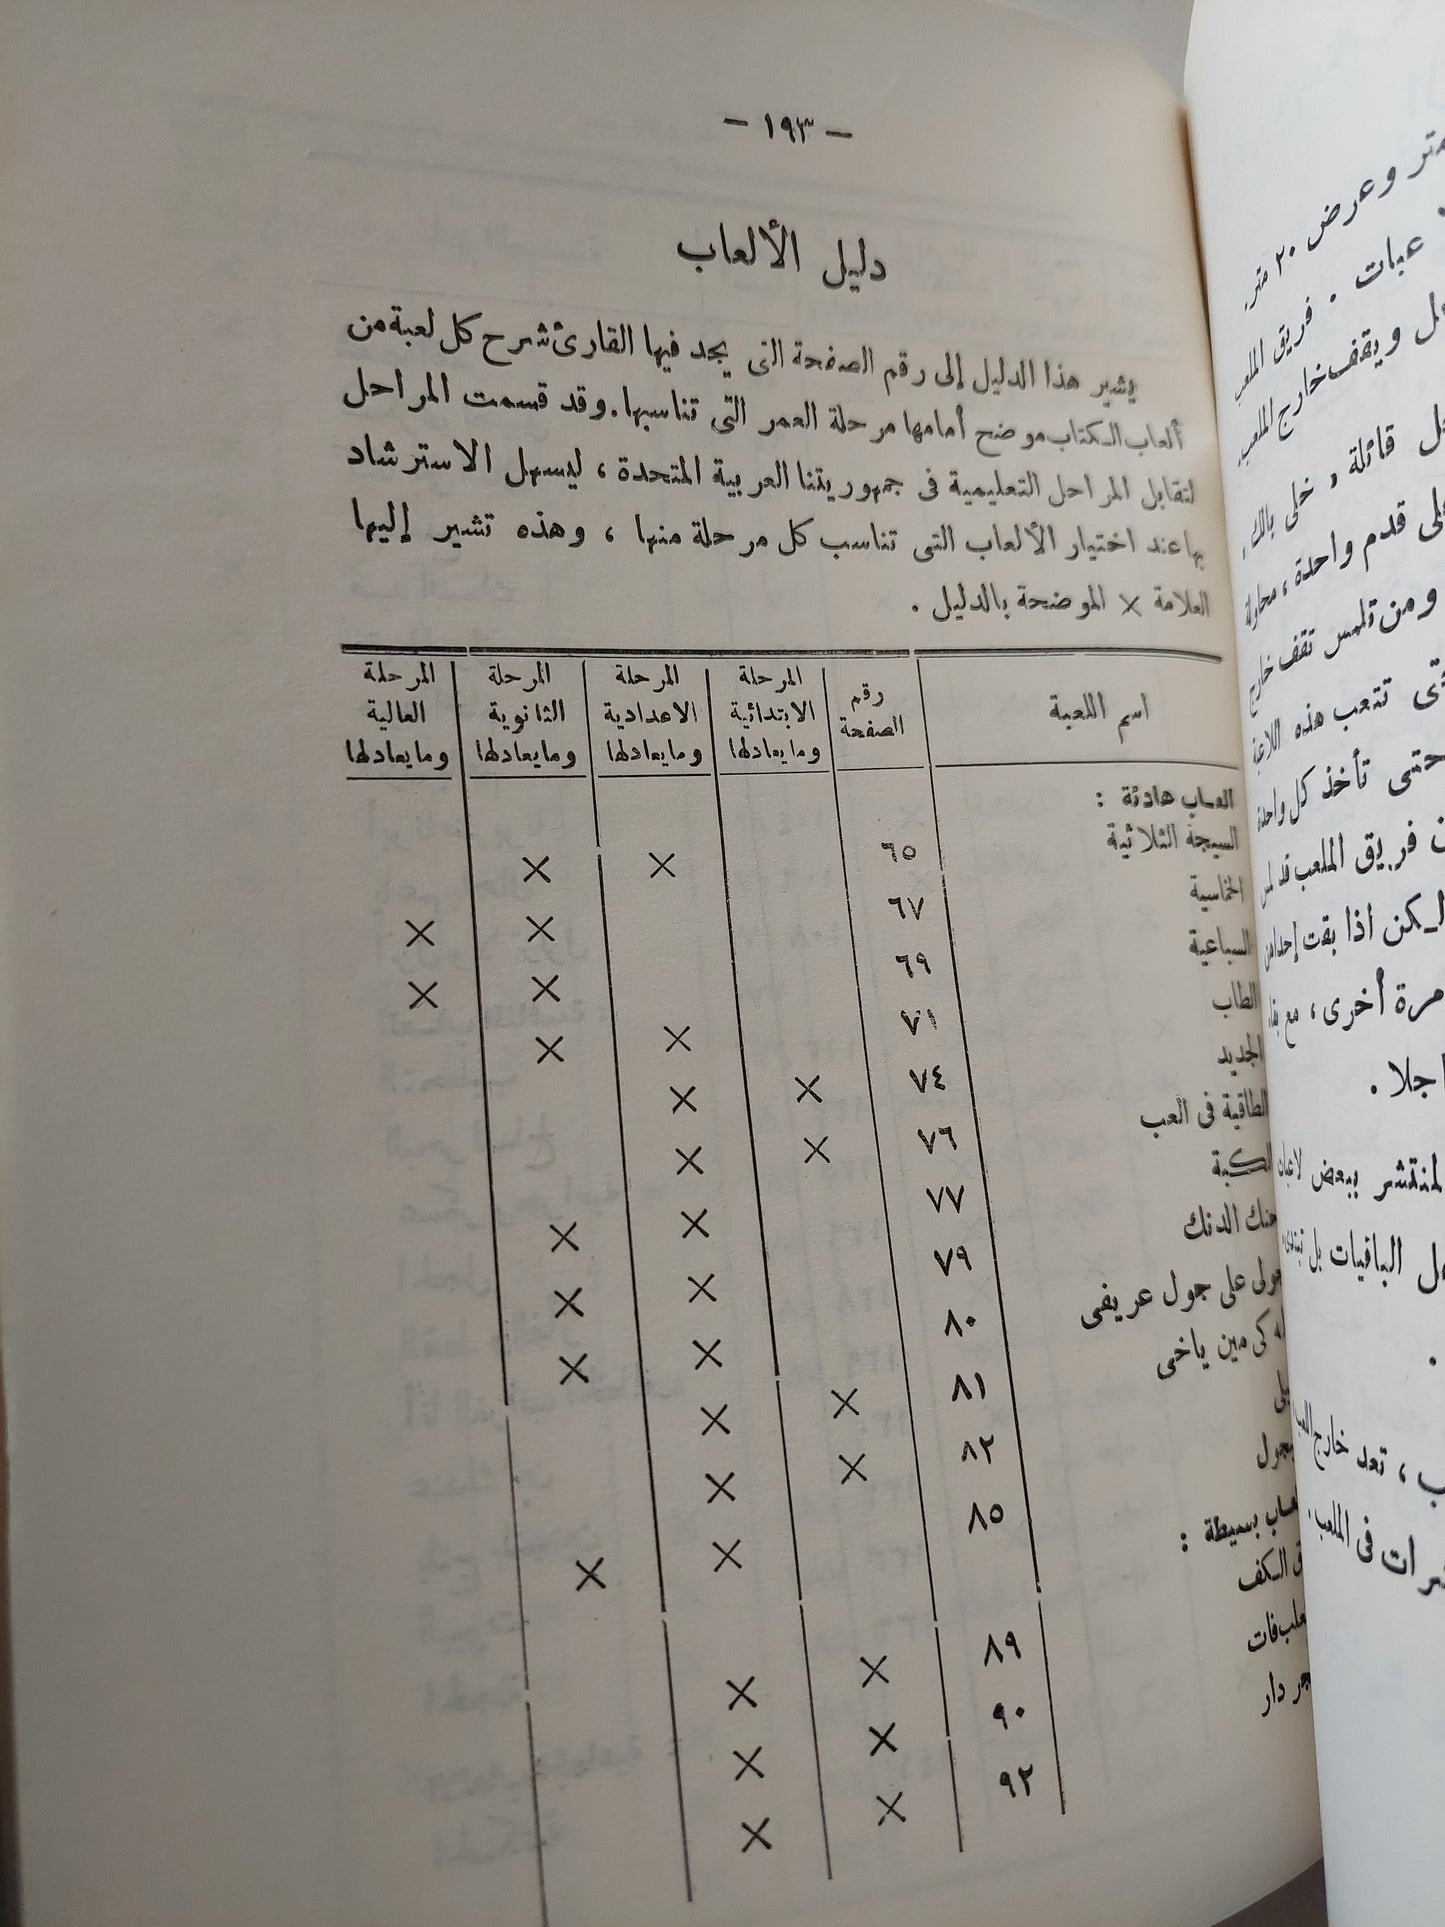 - ١٩٣ -
دليل الألعاب
يشير هذا الدليل إلى رقم الصفحة التى يجد فيها القارئ شرح كل لعبة من
ألعاب الكتاب موضح أمامها مرحلة العمر التى تناسبها. وقد قسمت المراحل
لتقابل المراحل التعليمية فى جمهوريتنا العربية المتحدة ، ليسهل الاسترشاد
بها عند اختيار الألعاب التى تناسب كل مرحلة منها ، وهذه تشير إليها
العلامة × الموضحة بالدليل .
اسم اللعبة | رقم الصفحة | المرحلة الابتدائية وما يعادلها | المرحلة الاعدادية وما يعادلها | المرحلة الثانوية وما يعادلها | المرحلة العالية وما يعادلها
العاب هادئة :
السيجة الثلاثية ٦٥ × ×
الخاسية ٦٧ × ×
السباعية ٦٩ × ×
الطاب ٧١ × ×
الجديد ٧٤ × ×
الطاقية فى العب ٧٦ × ×
الكبة ٧٧ × ×
حنك الدنك ٧٩ × ×
على جول عريفى ٨٠ × ×
كى مين ياخى ٨١ × ×
٨٢ × ×
٨٥ × ×
بسيطة :
الكف ٨٩ × ×
فات ٩٠ × ×
دار ٩٢ × ×
متر وعرض ٢٠ متر.
فريق الملعب
ويقف خارج الملعب.
قائلة ، خلى بالك ،
قدم واحدة ، محاولة
ومن تلمس تقف خارج
تتعب هذه اللاعبة
حتى تأخذ كل واحدة
فريق الملعب قد لمس
لكن اذا بقت إحداهن
مرة أخرى ، مع بقاء
المنتشر ببعض لاعبات
الباقيات بل تبتدىء
، تعد خارج اللعب
فى الملعب .